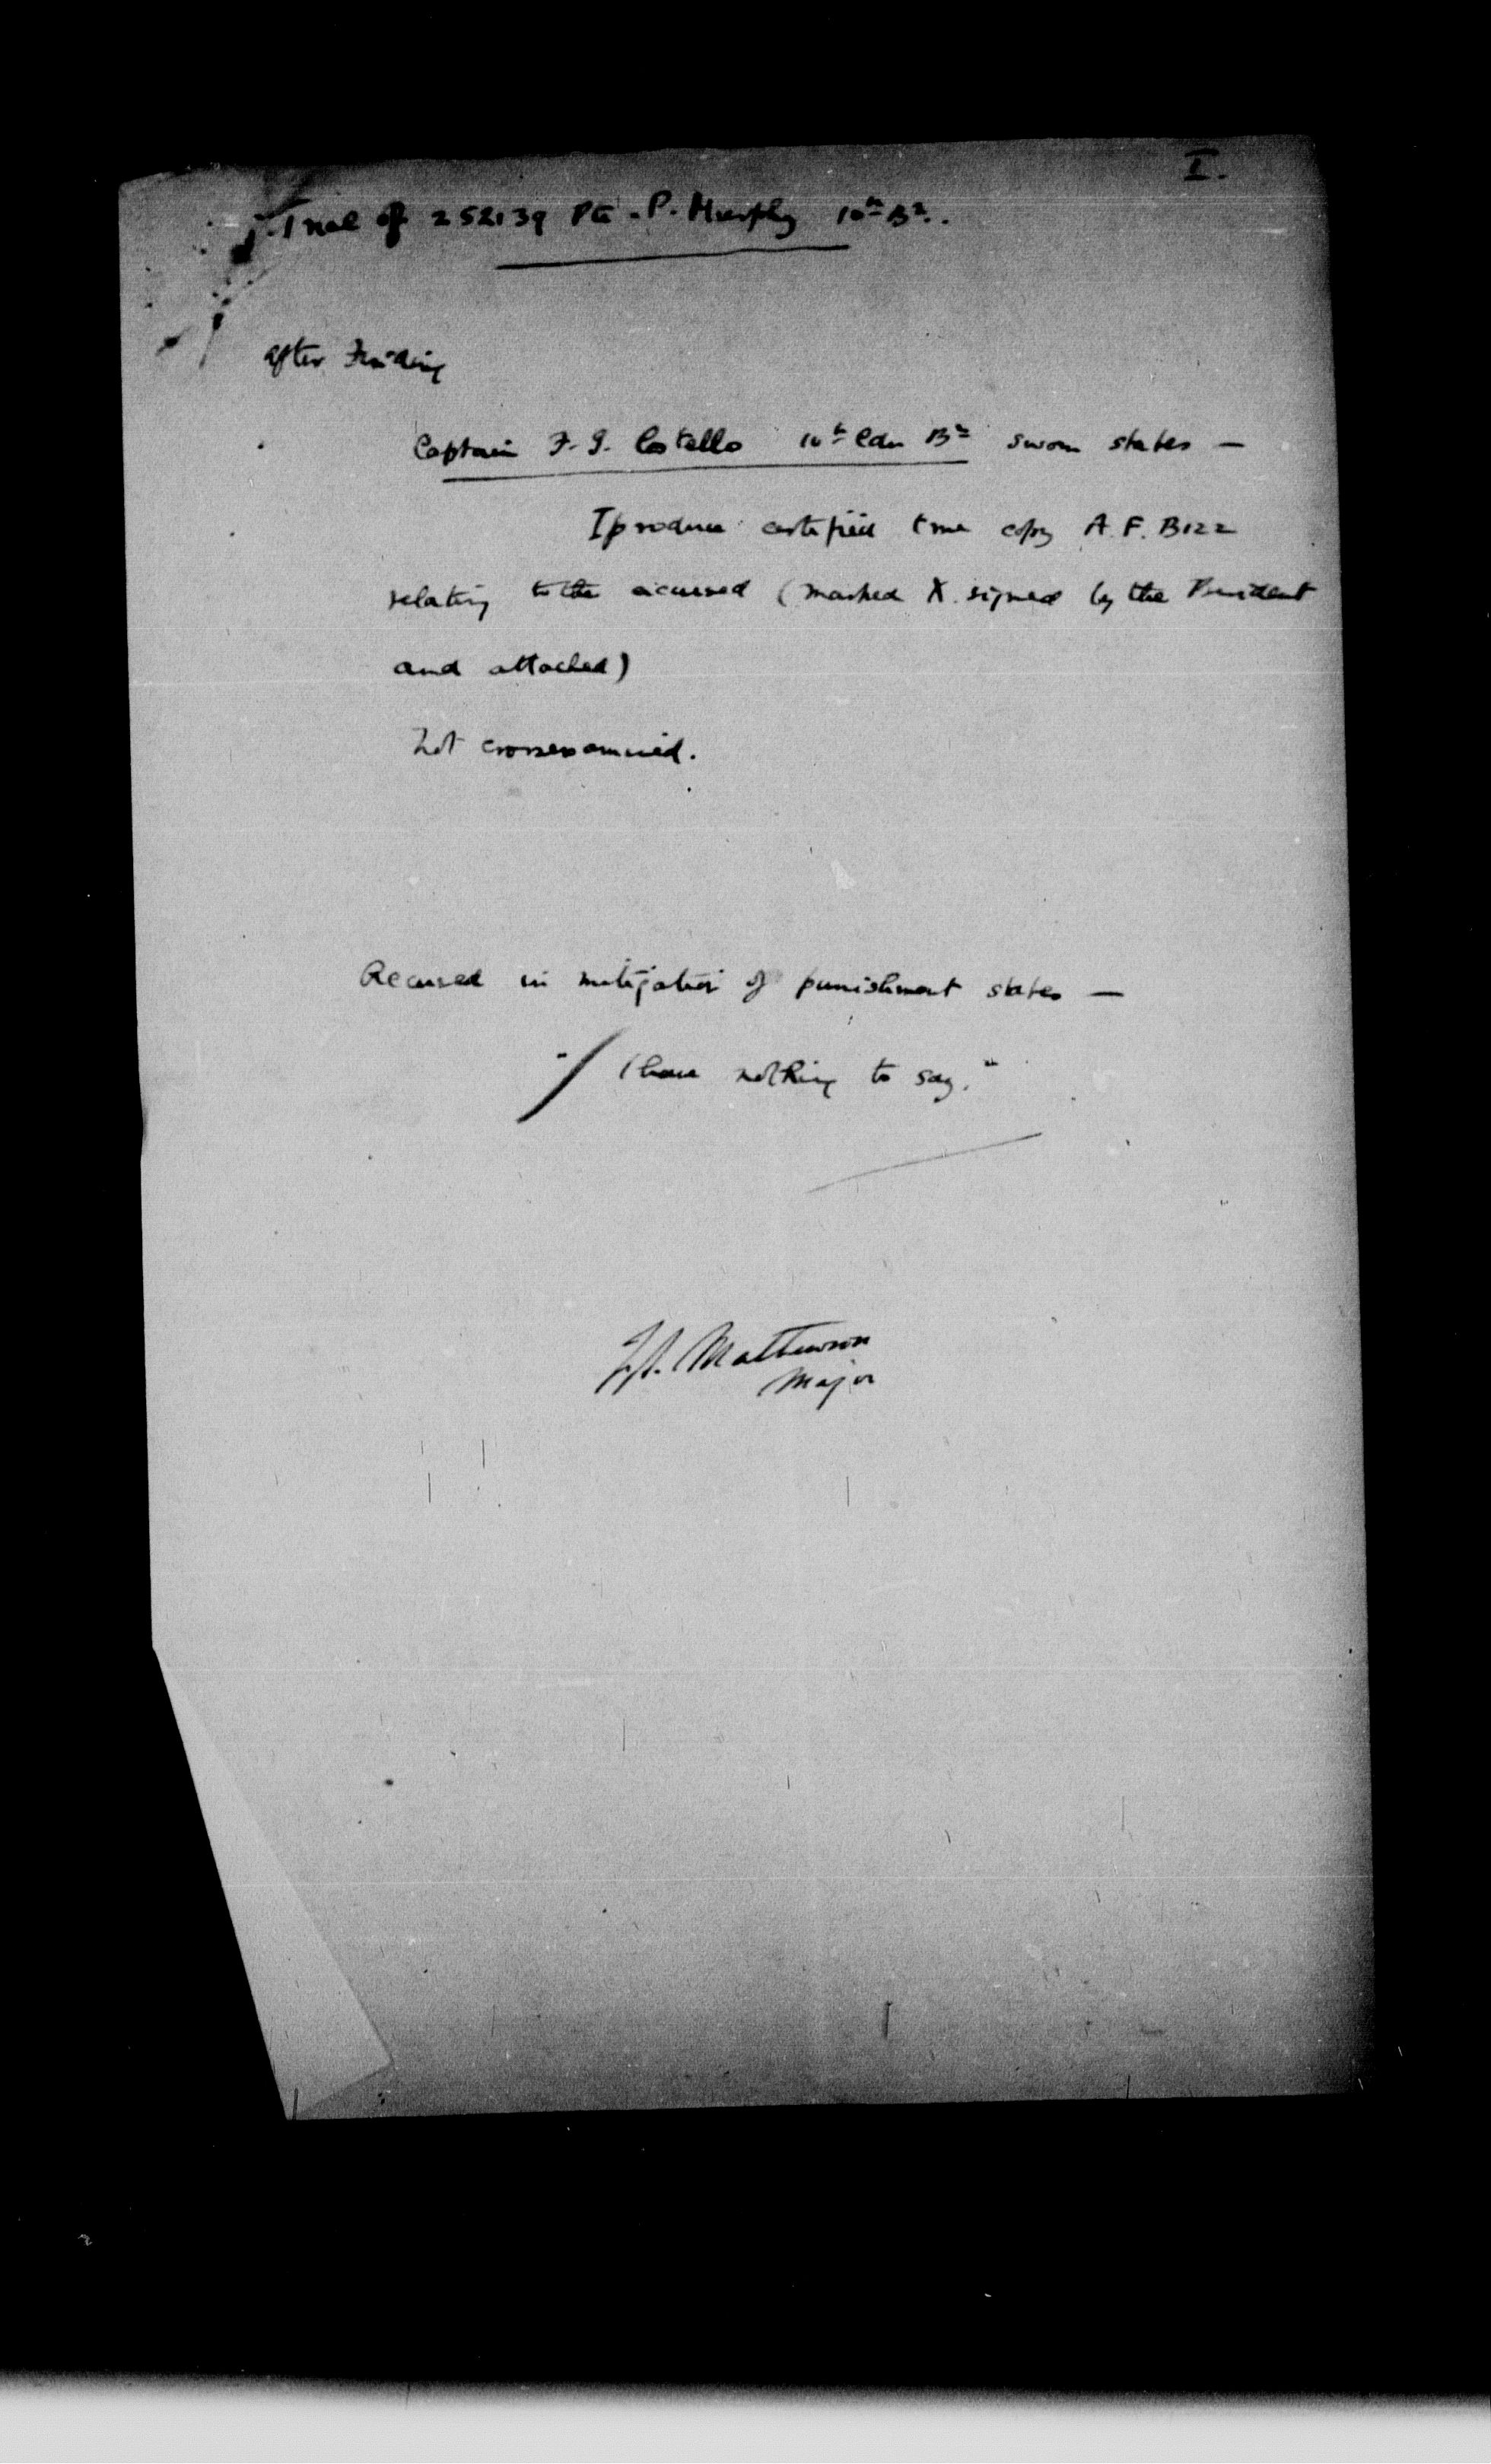 I.
Trial of 252139 Pte. P. Murphy 10th Bn.
after Finding
Captain F. G. Costello 10th Cdn Bn sworn states —
I produce certified true copy A. F. B122
relating to the accused (marked X signed by the President
and attached)
Not crossexamined.
Accused in mitigation of punishment states —
"I have nothing to say."
Mathewson
Major